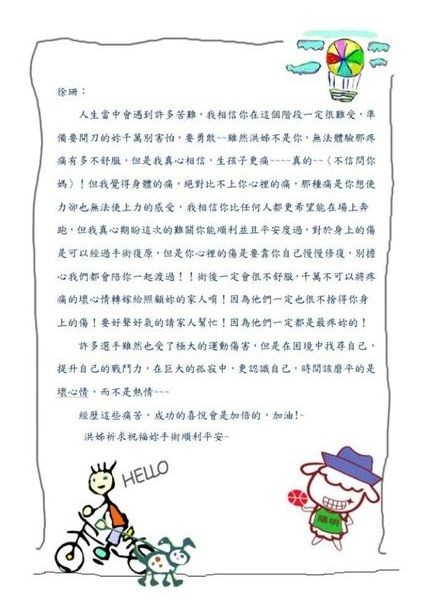 徐珊：
人生當中會遇到許多苦難，我相信你在這個階段一定很難受，準
備要開刀的妳千萬別害怕，要勇敢~~雖然洪姊不是你，無法體驗那疼
痛有多不舒服，但是我真心相信，生孩子更痛~~~~真的~~〈不信問你
媽〉！但我覺得身體的痛，絕對比不上你心裡的痛，那種痛是你想使
力卻也無法使上力的感受，我相信你比任何人都更希望能在場上奔
跑，但我真心期盼這次的難關你能順利並且平安度過，對於身上的傷
是可以經過手術復原，但是你心裡的傷是要靠你自己慢慢修復，別擔
心我們都會陪你一起渡過！！術後一定會很不舒服，千萬不可以將疼
痛的壞心情轉嫁給照顧妳的家人唷！因為他們一定也很不捨得你身
上的傷！要好聲好氣的請家人幫忙！因為他們一定都是最疼妳的！
許多選手雖然也受了極大的運動傷害，但是在困境中找尋自己，
提升自己的戰鬥力，在巨大的孤寂中，更認識自己，時間該磨平的是
壞心情，而不是熱情~~~
經歷這些痛苦，成功的喜悅會是加倍的，加油!~
洪姊祈求祝福妳手術順利平安~
HELLO
陽明